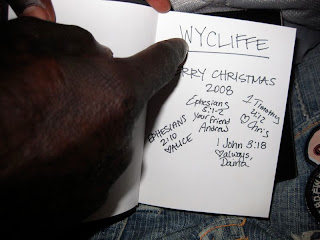 WYCLIFFE
ERRY CHRISTMAS
2008
Ephesians
5:1-2
Your friend
Andrew
1 Timothy
4:12
♡Chris
EPHESIANS
2:10
♡ALICE
1 John 3:18
♡always,